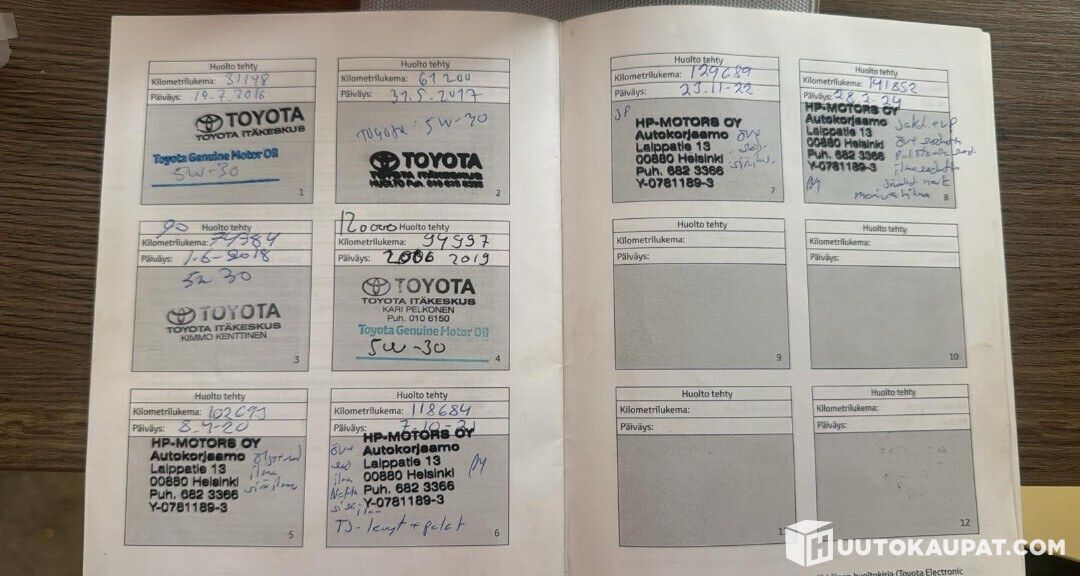 Huolto tehty
Kilometrilukema: 31148
Päiväys: 19.7.2016
TOYOTA
TOYOTA ITÄKESKUS
Toyota Genuine Motor Oil
5W-30
1
Huolto tehty
Kilometrilukema: 61200
Päiväys: 31.5.2017
TOYOTA 5W-30
TOYOTA
TOYOTA ITÄKESKUS
HUOLTO Puh.
2
90
Huolto tehty
Kilometrilukema: 74384
Päiväys: 1-6-2018
5W 30
TOYOTA
TOYOTA ITÄKESKUS
KIMMO KENTTINEN
3
120000 Huolto tehty
Kilometrilukema: 94997
Päiväys: 2006 2019
TOYOTA
TOYOTA ITÄKESKUS
KARI PELKONEN
Puh. 010 6150
Toyota Genuine Motor Oil
5W-30
4
Huolto tehty
Kilometrilukema: 102693
Päiväys: 8.4-20
HP-MOTORS OY
Autokorjaamo
Laippatie 13
00880 Helsinki
Puh. 682 3366
Y-0781189-3
5
Huolto tehty
Kilometrilukema: 118684
Päiväys: 7-10-21
HP-MOTORS OY
Autokorjaamo
Laippatie 13
00880 Helsinki
Puh. 682 3366
Y-0781189-3
6
Huolto tehty
Kilometrilukema: 129689
Päiväys: 23.11-22
HP-MOTORS OY
Autokorjaamo
Laippatie 13
00880 Helsinki
Puh. 682 3366
Y-0781189-3
7
Huolto tehty
Kilometrilukema: 141852
Päiväys: 28.2.24
HP-MOTORS OY
Autokorjaamo
Laippatie 13
00880 Helsinki
Puh. 682 3366
Y-0781189-3
8
Huolto tehty
Kilometrilukema:
Päiväys:
9
Huolto tehty
Kilometrilukema:
Päiväys:
10
Huolto tehty
Kilometrilukema:
Päiväys:
Huolto tehty
Kilometrilukema:
Päiväys:
12
HUUTOKAUPAT.COM
huoltokirja (Toyota Electronic